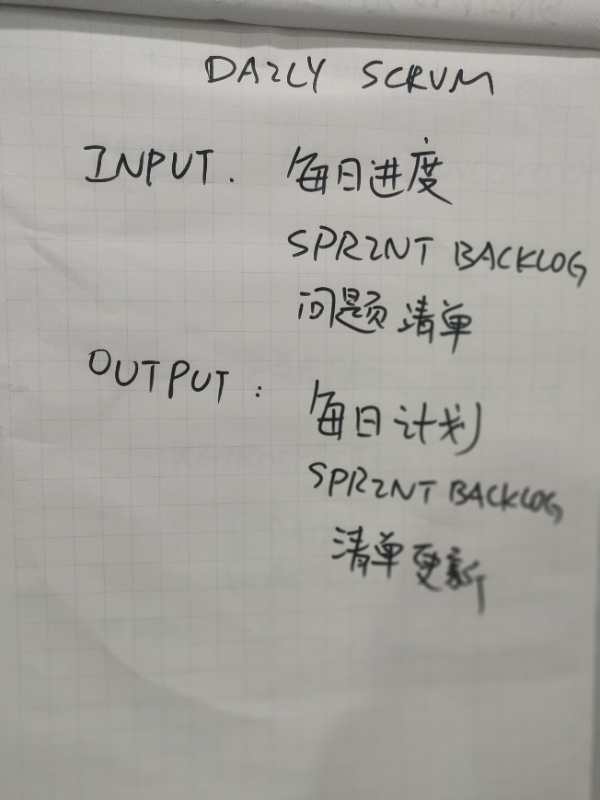 DAILY SCRUM
INPUT. 每日进度
SPRINT BACKLOG
问题清单
OUTPUT: 每日计划
SPRINT BACKLOG
清单更新